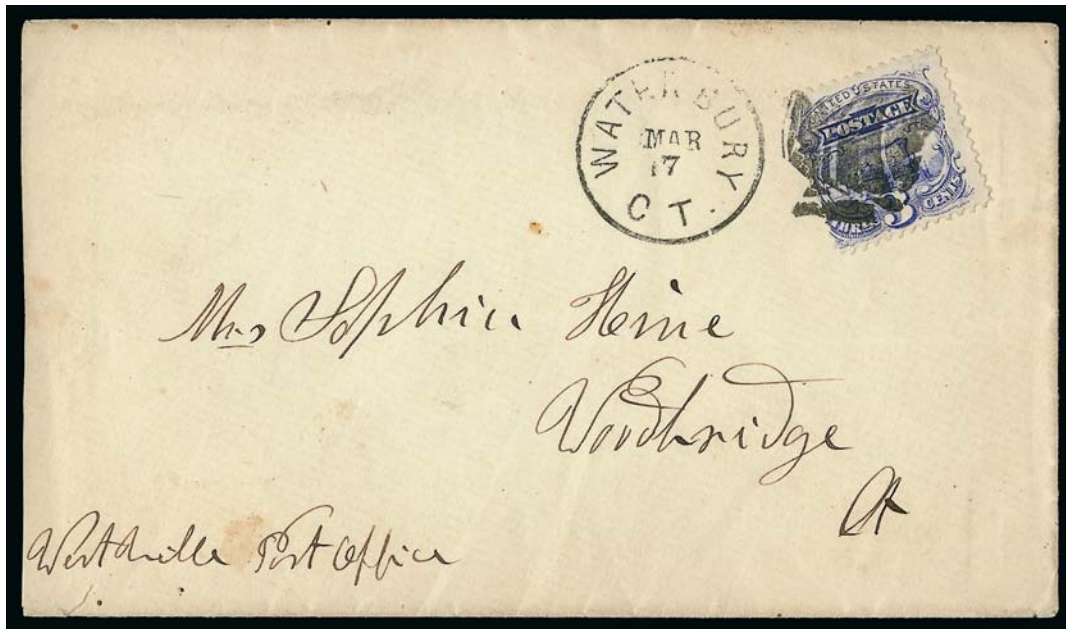 WATERBURY
MAR
17
CT.
UNITED STATES
POSTAGE
THREE 3 CENTS
Mrs Sophia Heine
Woodbridge
Ct
Westville Post Office